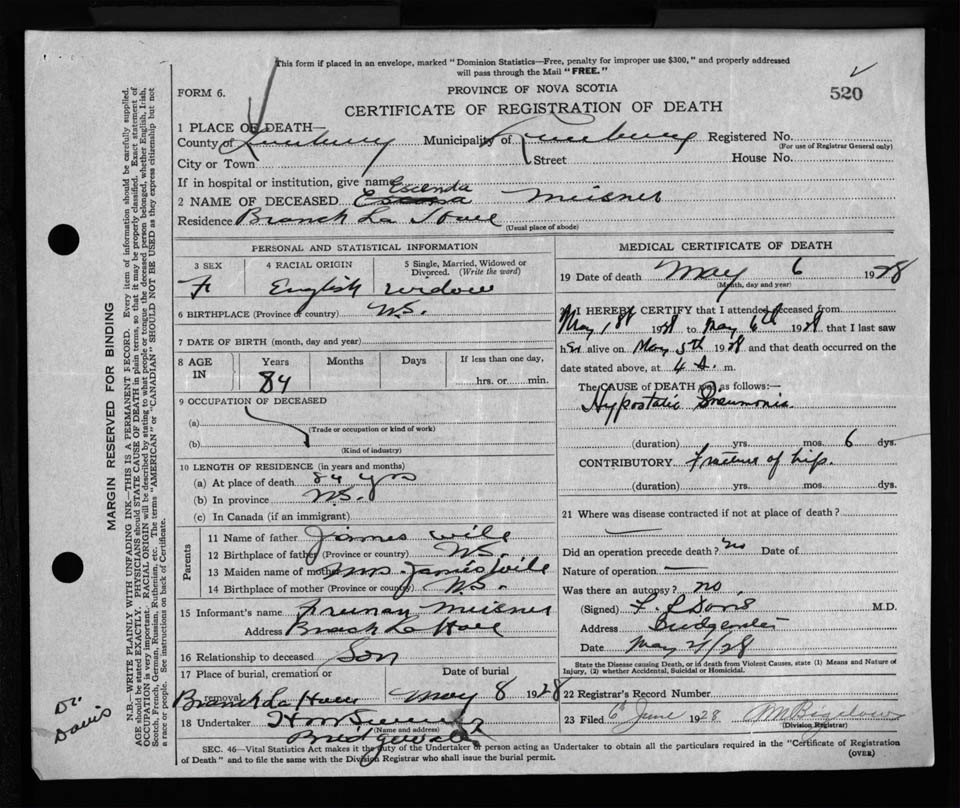 This form if placed in an envelope, marked "Dominion Statistics—Free, penalty for improper use $300," and properly addressed
will pass through the Mail "FREE."
FORM 6.
PROVINCE OF NOVA SCOTIA
520
CERTIFICATE OF REGISTRATION OF DEATH
1 PLACE OF DEATH—
County of Lunenburg Municipality of Lunenburg Registered No.
(For use of Registrar General only)
City or Town Street House No.
If in hospital or institution, give name
2 NAME OF DECEASED Escenda Meisner
Residence Branch La Have
(Usual place of abode)
PERSONAL AND STATISTICAL INFORMATION
3 SEX 4 RACIAL ORIGIN 5 Single, Married, Widowed or Divorced. (Write the word)
F English widow
6 BIRTHPLACE (Province or country) N.S.
7 DATE OF BIRTH (month, day and year)
8 AGE IN Years Months Days If less than one day,
84 hrs. or min.
9 OCCUPATION OF DECEASED
(a)
(Trade or occupation or kind of work)
(b)
(Kind of industry)
10 LENGTH OF RESIDENCE (in years and months)
(a) At place of death 84 yrs
(b) In province N.S.
(c) In Canada (if an immigrant)
Parents
11 Name of father James Wile
12 Birthplace of father (Province or country) N.S.
13 Maiden name of mother Mrs. James Wile
14 Birthplace of mother (Province or country) N.S.
15 Informant's name Freeman Meisner
Address Branch La Have
16 Relationship to deceased Son
17 Place of burial, cremation or removal Date of burial
Branch La Have May 8 1928
18 Undertaker
(Name and address)
Bridgewater
MEDICAL CERTIFICATE OF DEATH
19 Date of death May 6 1928
(Month, day and year)
20 I HEREBY CERTIFY that I attended deceased from
May 1st 1928 to May 6th 1928 that I last saw
her alive on May 5th 1928 and that death occurred on the
date stated above, at 4 a. m.
The CAUSE OF DEATH was as follows:—
Hypostatic Pneumonia
(duration) yrs. mos. 6 dys.
CONTRIBUTORY Fracture of hip.
(duration) yrs. mos. dys.
21 Where was disease contracted if not at place of death?
Did an operation precede death? no Date of
Nature of operation —
Was there an autopsy? no
(Signed) Davis M.D.
Address Bridgewater
Date May 21/28
State the Disease causing Death, or in death from Violent Causes, state (1) Means and Nature of
Injury, (2) whether Accidental, Suicidal or Homicidal.
22 Registrar's Record Number
23 Filed 6th June 1928
(Division Registrar)
SEC. 46—Vital Statistics Act makes it the duty of the Undertaker or person acting as Undertaker to obtain all the particulars required in the "Certificate of Registration
of Death" and to file the same with the Division Registrar who shall issue the burial permit.
(OVER)
MARGIN RESERVED FOR BINDING
N.B.—WRITE PLAINLY WITH UNFADING INK—THIS IS A PERMANENT RECORD. Every item of information should be carefully supplied.
AGE should be stated EXACTLY. PHYSICIANS should STATE CAUSE OF DEATH in plain terms, so that it may be properly classified. Exact statement of
OCCUPATION is very important. RACIAL ORIGIN will be described by stating to what people or tongue the deceased person belonged, whether English, Irish,
Scotch, French, German, Russian, Ruthenian, etc. The terms "AMERICAN" or "CANADIAN" SHOULD NOT BE USED as they express citizenship but not
a race or people. See instructions on back of Certificate.
Dr.
Davis